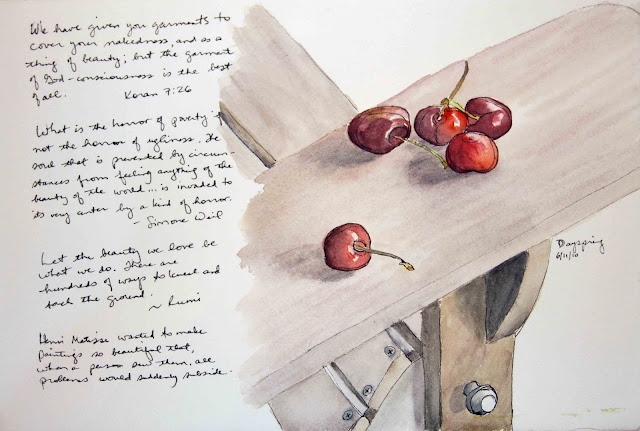 We have given you garments to
cover your nakedness, and as a
thing of beauty; but the garment
of God-consciousness is the best
of all. Koran 7:26
What is the horror of poverty if
not the horror of ugliness. The
soul that is prevented by circum-
stances from feeling anything of the
beauty of the world... is invaded to
its very center by a kind of horror.
- Simone Weil
Let the beauty we love be
what we do. There are
hundreds of ways to kneel and
touch the ground.
~ Rumi
Henri Matisse wanted to make
paintings so beautiful that,
when a person saw them, all
problems would suddenly subside.
Dayspring
6/11/10